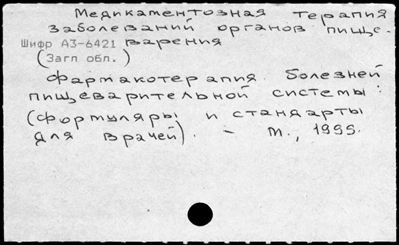 Медикаментозная терапия
заболеваний органов пище-
Шифр А3-6421 варения
(Загл обл.)
Фармакотерапия болезней
пищеварительной системы:
(формуляры и стандарты
для врачей). - М., 1999.